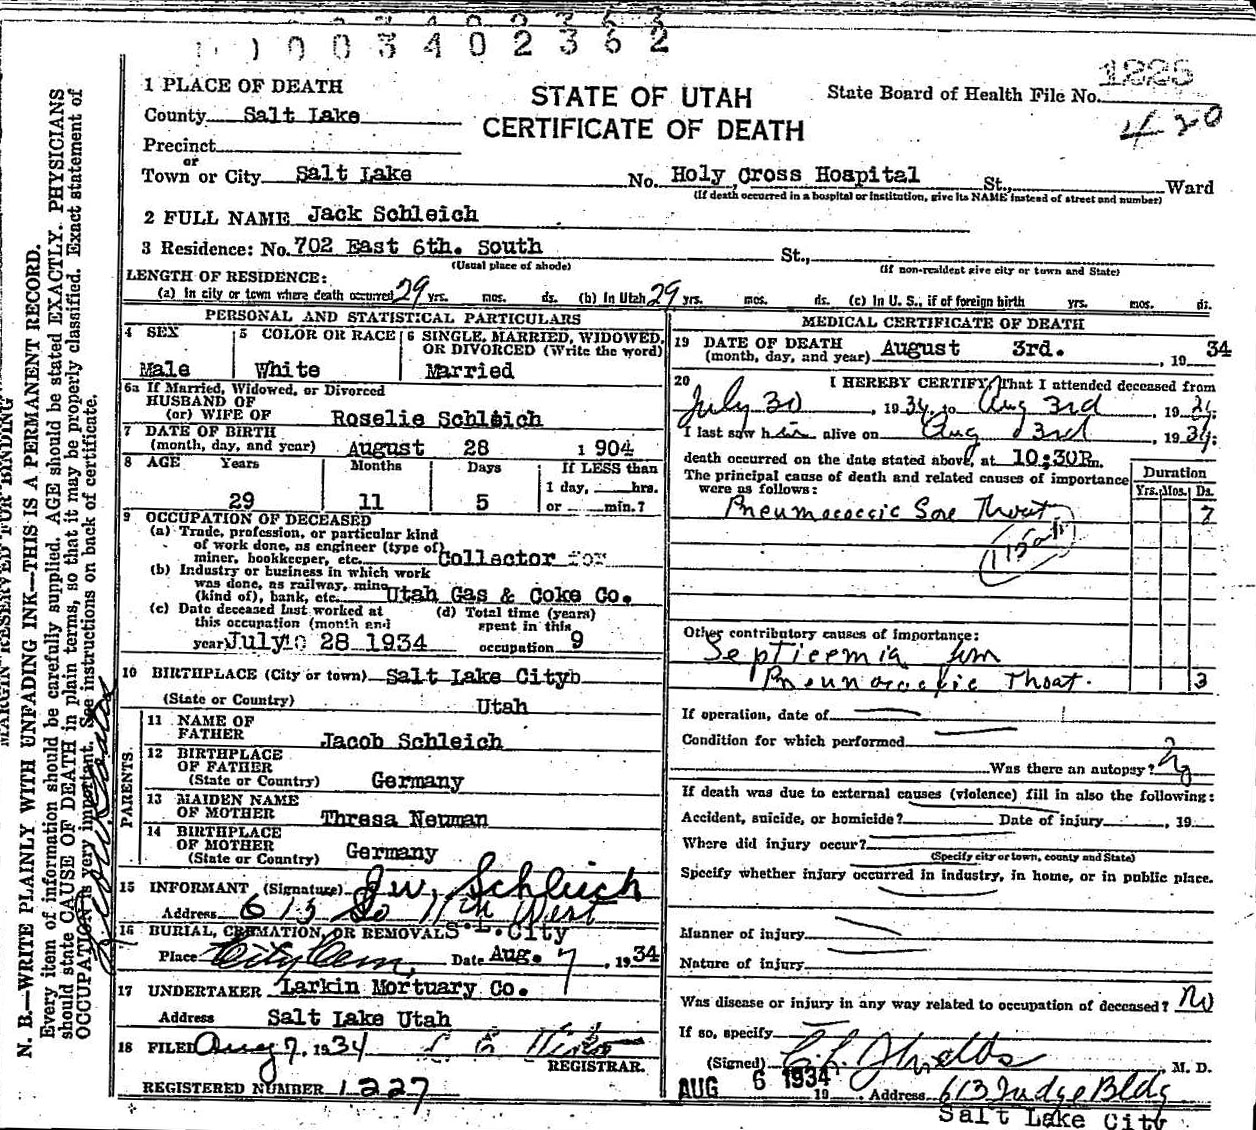 003402362
1 PLACE OF DEATH
STATE OF UTAH
CERTIFICATE OF DEATH
State Board of Health File No. 1225
420
County Salt Lake
Precinct
or
Town or City Salt Lake No. Holy Cross Hospital St., Ward
(If death occurred in a hospital or institution, give its NAME instead of street and number)
2 FULL NAME Jack Schleich
3 Residence: No. 702 East 6th. South St.,
(Usual place of abode) (If non-resident give city or town and State)
LENGTH OF RESIDENCE:
(a) In city or town where death occurred 29 yrs. mos. ds. (b) In Utah 29 yrs. mos. ds. (c) In U. S., if of foreign birth yrs. mos. ds.
PERSONAL AND STATISTICAL PARTICULARS
4 SEX 5 COLOR OR RACE 6 SINGLE, MARRIED, WIDOWED,
OR DIVORCED (Write the word)
Male White Married
6a If Married, Widowed, or Divorced
HUSBAND OF
(or) WIFE OF Roselie Schleich
7 DATE OF BIRTH
(month, day, and year) August 28 1904
8 AGE Years Months Days If LESS than
1 day, hrs.
29 11 5 or min.?
9 OCCUPATION OF DECEASED
(a) Trade, profession, or particular kind
of work done, as engineer (type of)
miner, bookkeeper, etc. Collector for
(b) Industry or business in which work
was done, as railway, mine
(kind of), bank, etc. Utah Gas & Coke Co.
(c) Date deceased last worked at (d) Total time (years)
this occupation (month and spent in this
year) July 28 1934 occupation 9
10 BIRTHPLACE (City or town) Salt Lake Cityb
(State or Country) Utah
PARENTS
11 NAME OF
FATHER Jacob Schleich
12 BIRTHPLACE
OF FATHER
(State or Country) Germany
13 MAIDEN NAME
OF MOTHER Thresa Neuman
14 BIRTHPLACE
OF MOTHER
(State or Country) Germany
15 INFORMANT (Signature) J.W. Schleich
Address 613 So 11th West
S.L. City
16 BURIAL, CREMATION, OR REMOVAL
Place City Cem, Date Aug. 7, 1934
17 UNDERTAKER Larkin Mortuary Co.
Address Salt Lake Utah
18 FILED Aug 7, 1934
REGISTRAR.
REGISTERED NUMBER 1227
MEDICAL CERTIFICATE OF DEATH
19 DATE OF DEATH
(month, day, and year) August 3rd. , 1934
20 I HEREBY CERTIFY, That I attended deceased from
July 30, 1934, to Aug 3rd 1934;
I last saw him alive on Aug 3rd, 1934;
death occurred on the date stated above, at 10:30Pm.
The principal cause of death and related causes of importance
were as follows:
Duration
Yrs. Mos. Ds.
Pneumococcic Sore Throat 7
115a
Other contributory causes of importance:
Septicemia from
Pneumococcic Throat. 3
If operation, date of
Condition for which performed
Was there an autopsy? No
If death was due to external causes (violence) fill in also the following:
Accident, suicide, or homicide? Date of injury , 19
Where did injury occur?
(Specify city or town, county and State)
Specify whether injury occurred in industry, in home, or in public place.
Manner of injury
Nature of injury
Was disease or injury in any way related to occupation of deceased? No
If so, specify
(Signed) C.L. Shields M. D.
AUG 6 1934 19 . Address 613 Judge Bldg
Salt Lake City
MARGIN RESERVED FOR BINDING
N. B.—WRITE PLAINLY WITH UNFADING INK—THIS IS A PERMANENT RECORD.
Every item of information should be carefully supplied. AGE should be stated EXACTLY. PHYSICIANS
should state CAUSE OF DEATH in plain terms, so that it may be properly classified. Exact statement of
OCCUPATION is very important. See instructions on back of certificate.